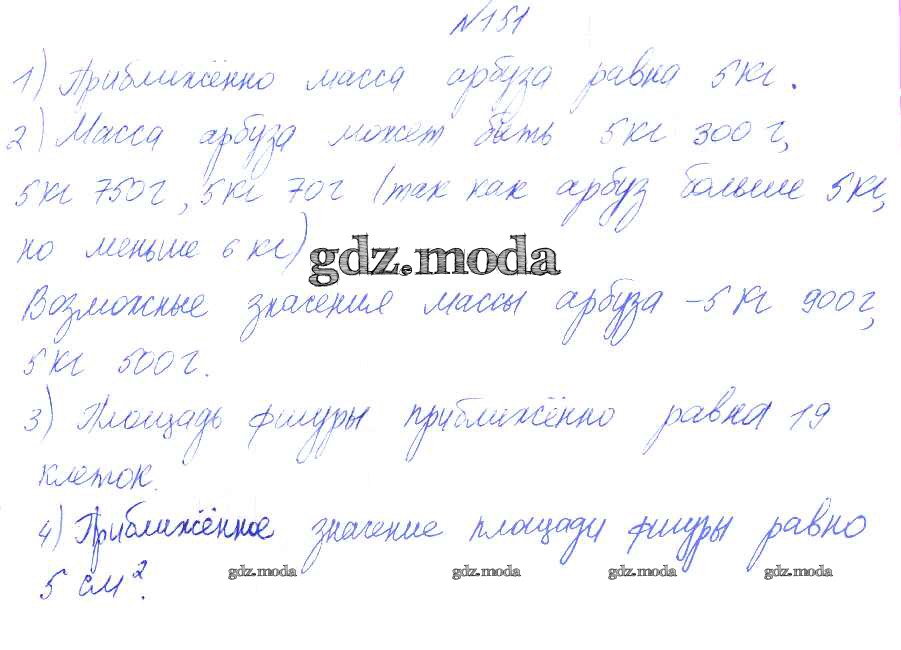 №151
1) Приближённо масса арбуза равна 5кг.
2) Масса арбуза может быть 5кг 300г,
5кг 750г, 5кг 70г (так как арбуз больше 5кг,
но меньше 6 кг)
gdz.moda
Возможные значения массы арбуза – 5 кг 900г,
5кг 500г.
3) Площадь фигуры приближённо равна 19
клеток.
4) Приближённое значение площади фигуры равно
5 см².
gdz.moda gdz.moda gdz.moda gdz.moda